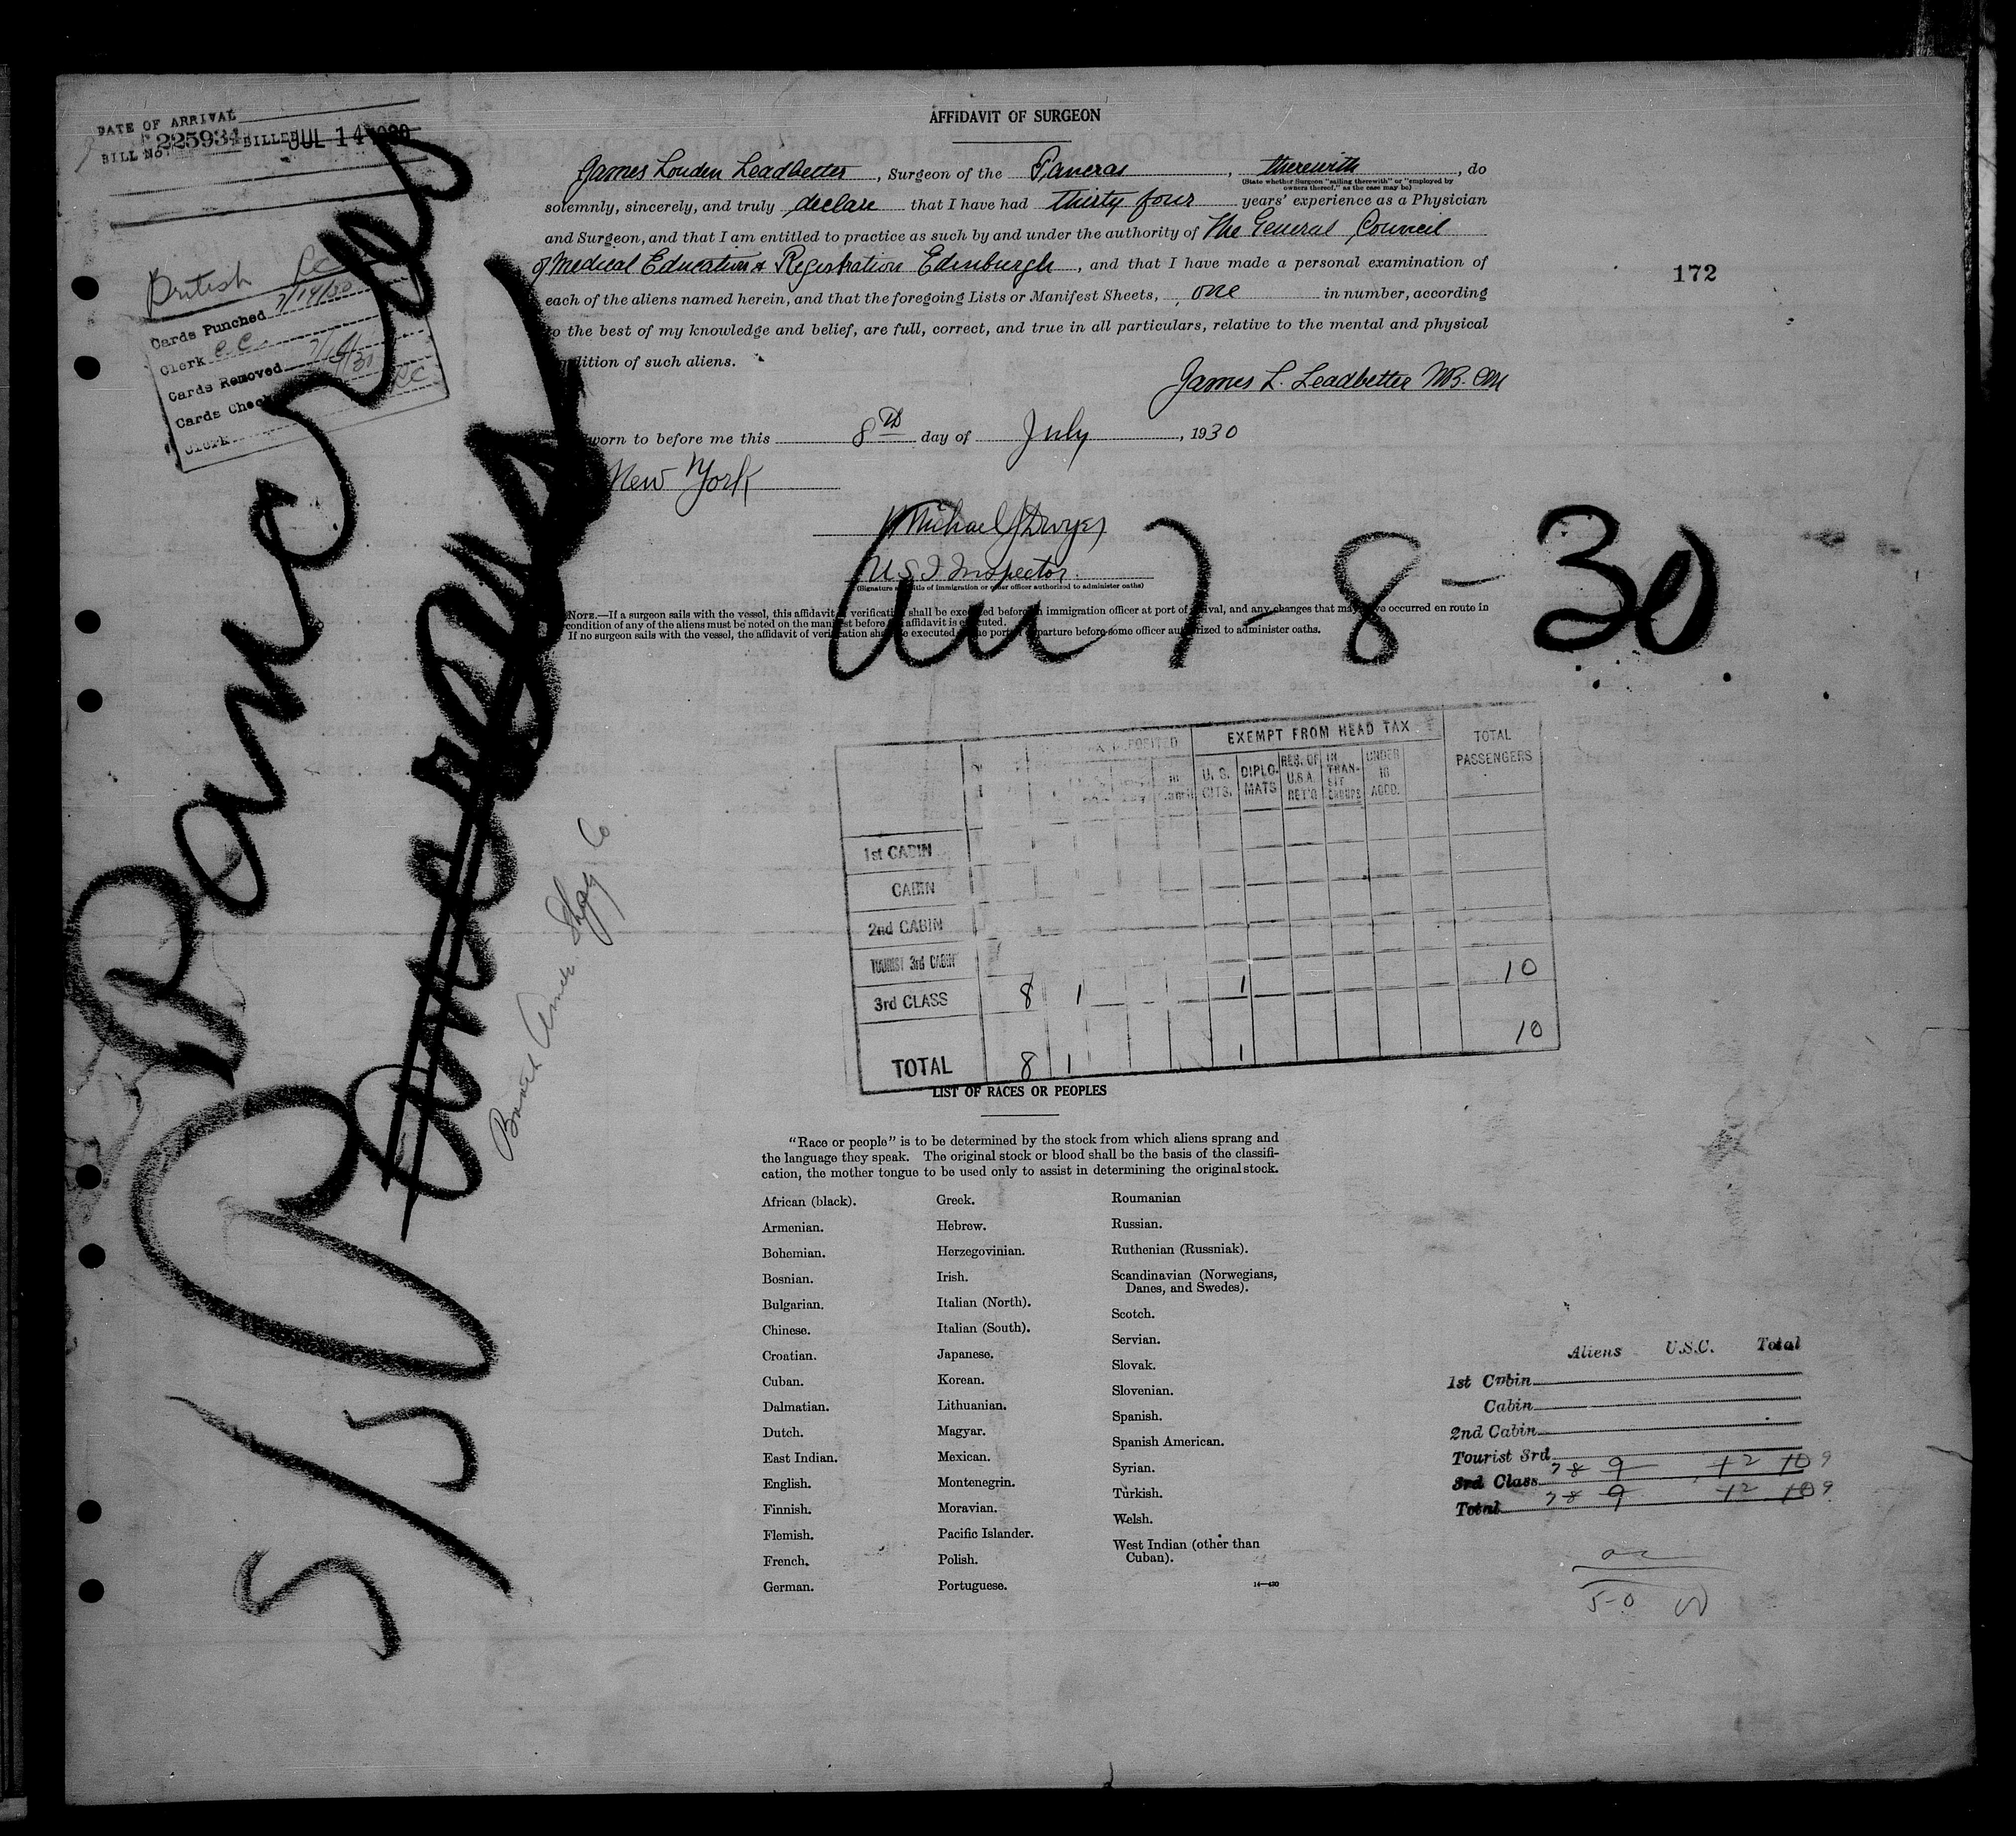 DATE OF ARRIVAL
BILL No. 225934 BILLED JUL 14 1930
British RC
Cards Punched 7/14/30
Clerk C.C.
Cards Removed
Cards Check RC
Clerk
AFFIDAVIT OF SURGEON
James Louden Leadbetter, Surgeon of the Pancras, therewith, do
(State whether Surgeon "sailing therewith" or "employed by
owners thereof," as the case may be)
solemnly, sincerely, and truly declare that I have had thirty four years' experience as a Physician
and Surgeon, and that I am entitled to practice as such by and under the authority of The General Council
of Medical Education & Registration Edinburgh, and that I have made a personal examination of
each of the aliens named herein, and that the foregoing Lists or Manifest Sheets, one in number, according
to the best of my knowledge and belief, are full, correct, and true in all particulars, relative to the mental and physical
condition of such aliens.
172
James L. Leadbetter MB. CM
Sworn to before me this 8th day of July, 1930
New York
Michael J Dwyer
U S I Inspector.
(Signature and title of immigration or other officer authorized to administer oaths)
NOTE.—If a surgeon sails with the vessel, this affidavit verification shall be executed before an immigration officer at port of arrival, and any changes that may have occurred en route in
condition of any of the aliens must be noted on the manifest before affidavit is executed.
If no surgeon sails with the vessel, the affidavit of verification shall be executed at the port of departure before some officer authorized to administer oaths.
Arr 7-8-30
S/S Pancras
EXEMPT FROM HEAD TAX
TOTAL PASSENGERS
U. S. CITS. DIPLO-MATS RES. OF U.S.A. RET'G IN TRAN-SIT GROUPS UNDER 16 ACCD.
1st CABIN
CABIN
2nd CABIN
TOURIST 3rd CABIN
3rd CLASS 8 1 1 10
TOTAL 8 1 1 10
LIST OF RACES OR PEOPLES
"Race or people" is to be determined by the stock from which aliens sprang and
the language they speak. The original stock or blood shall be the basis of the classifi-
cation, the mother tongue to be used only to assist in determining the original stock.
African (black).
Armenian.
Bohemian.
Bosnian.
Bulgarian.
Chinese.
Croatian.
Cuban.
Dalmatian.
Dutch.
East Indian.
English.
Finnish.
Flemish.
French.
German.
Greek.
Hebrew.
Herzegovinian.
Irish.
Italian (North).
Italian (South).
Japanese.
Korean.
Lithuanian.
Magyar.
Mexican.
Montenegrin.
Moravian.
Pacific Islander.
Polish.
Portuguese.
Roumanian
Russian.
Ruthenian (Russniak).
Scandinavian (Norwegians,
Danes, and Swedes).
Scotch.
Servian.
Slovak.
Slovenian.
Spanish.
Spanish American.
Syrian.
Turkish.
Welsh.
West Indian (other than
Cuban).
14—430
Aliens U.S.C. Total
1st Cabin
Cabin
2nd Cabin
Tourist 3rd
3rd Class 7 8 9 1 2 10 9
Total 7 8 9 1 2 10 9